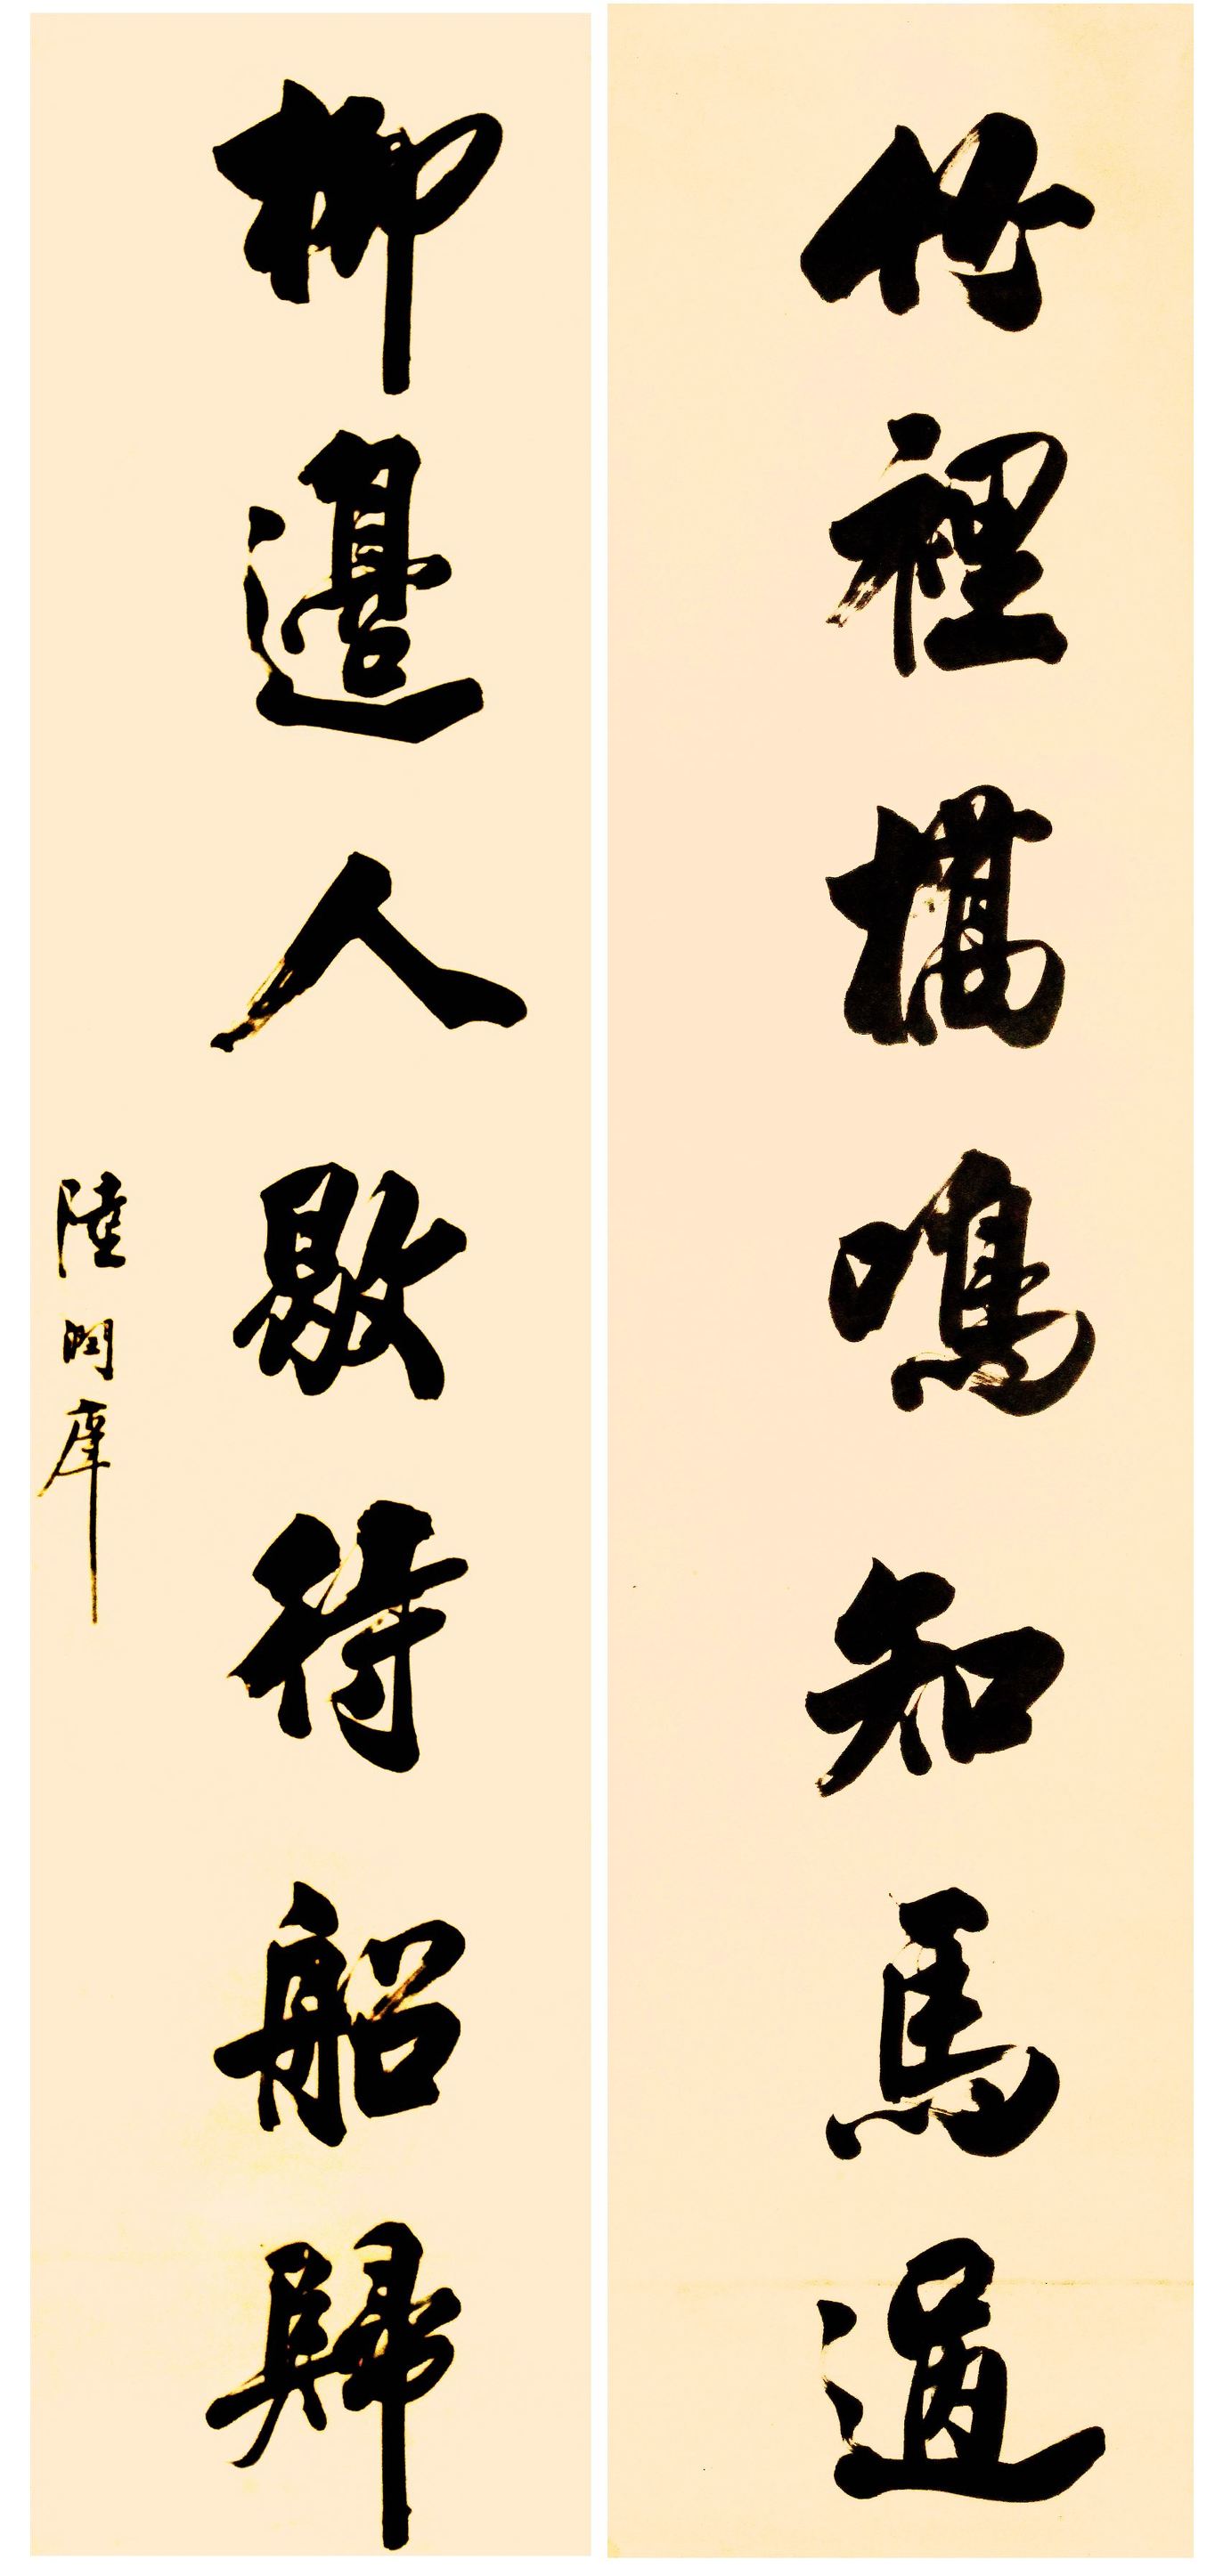 竹裡橋鳴知馬過
柳邊人歇待船歸
陸潤庠